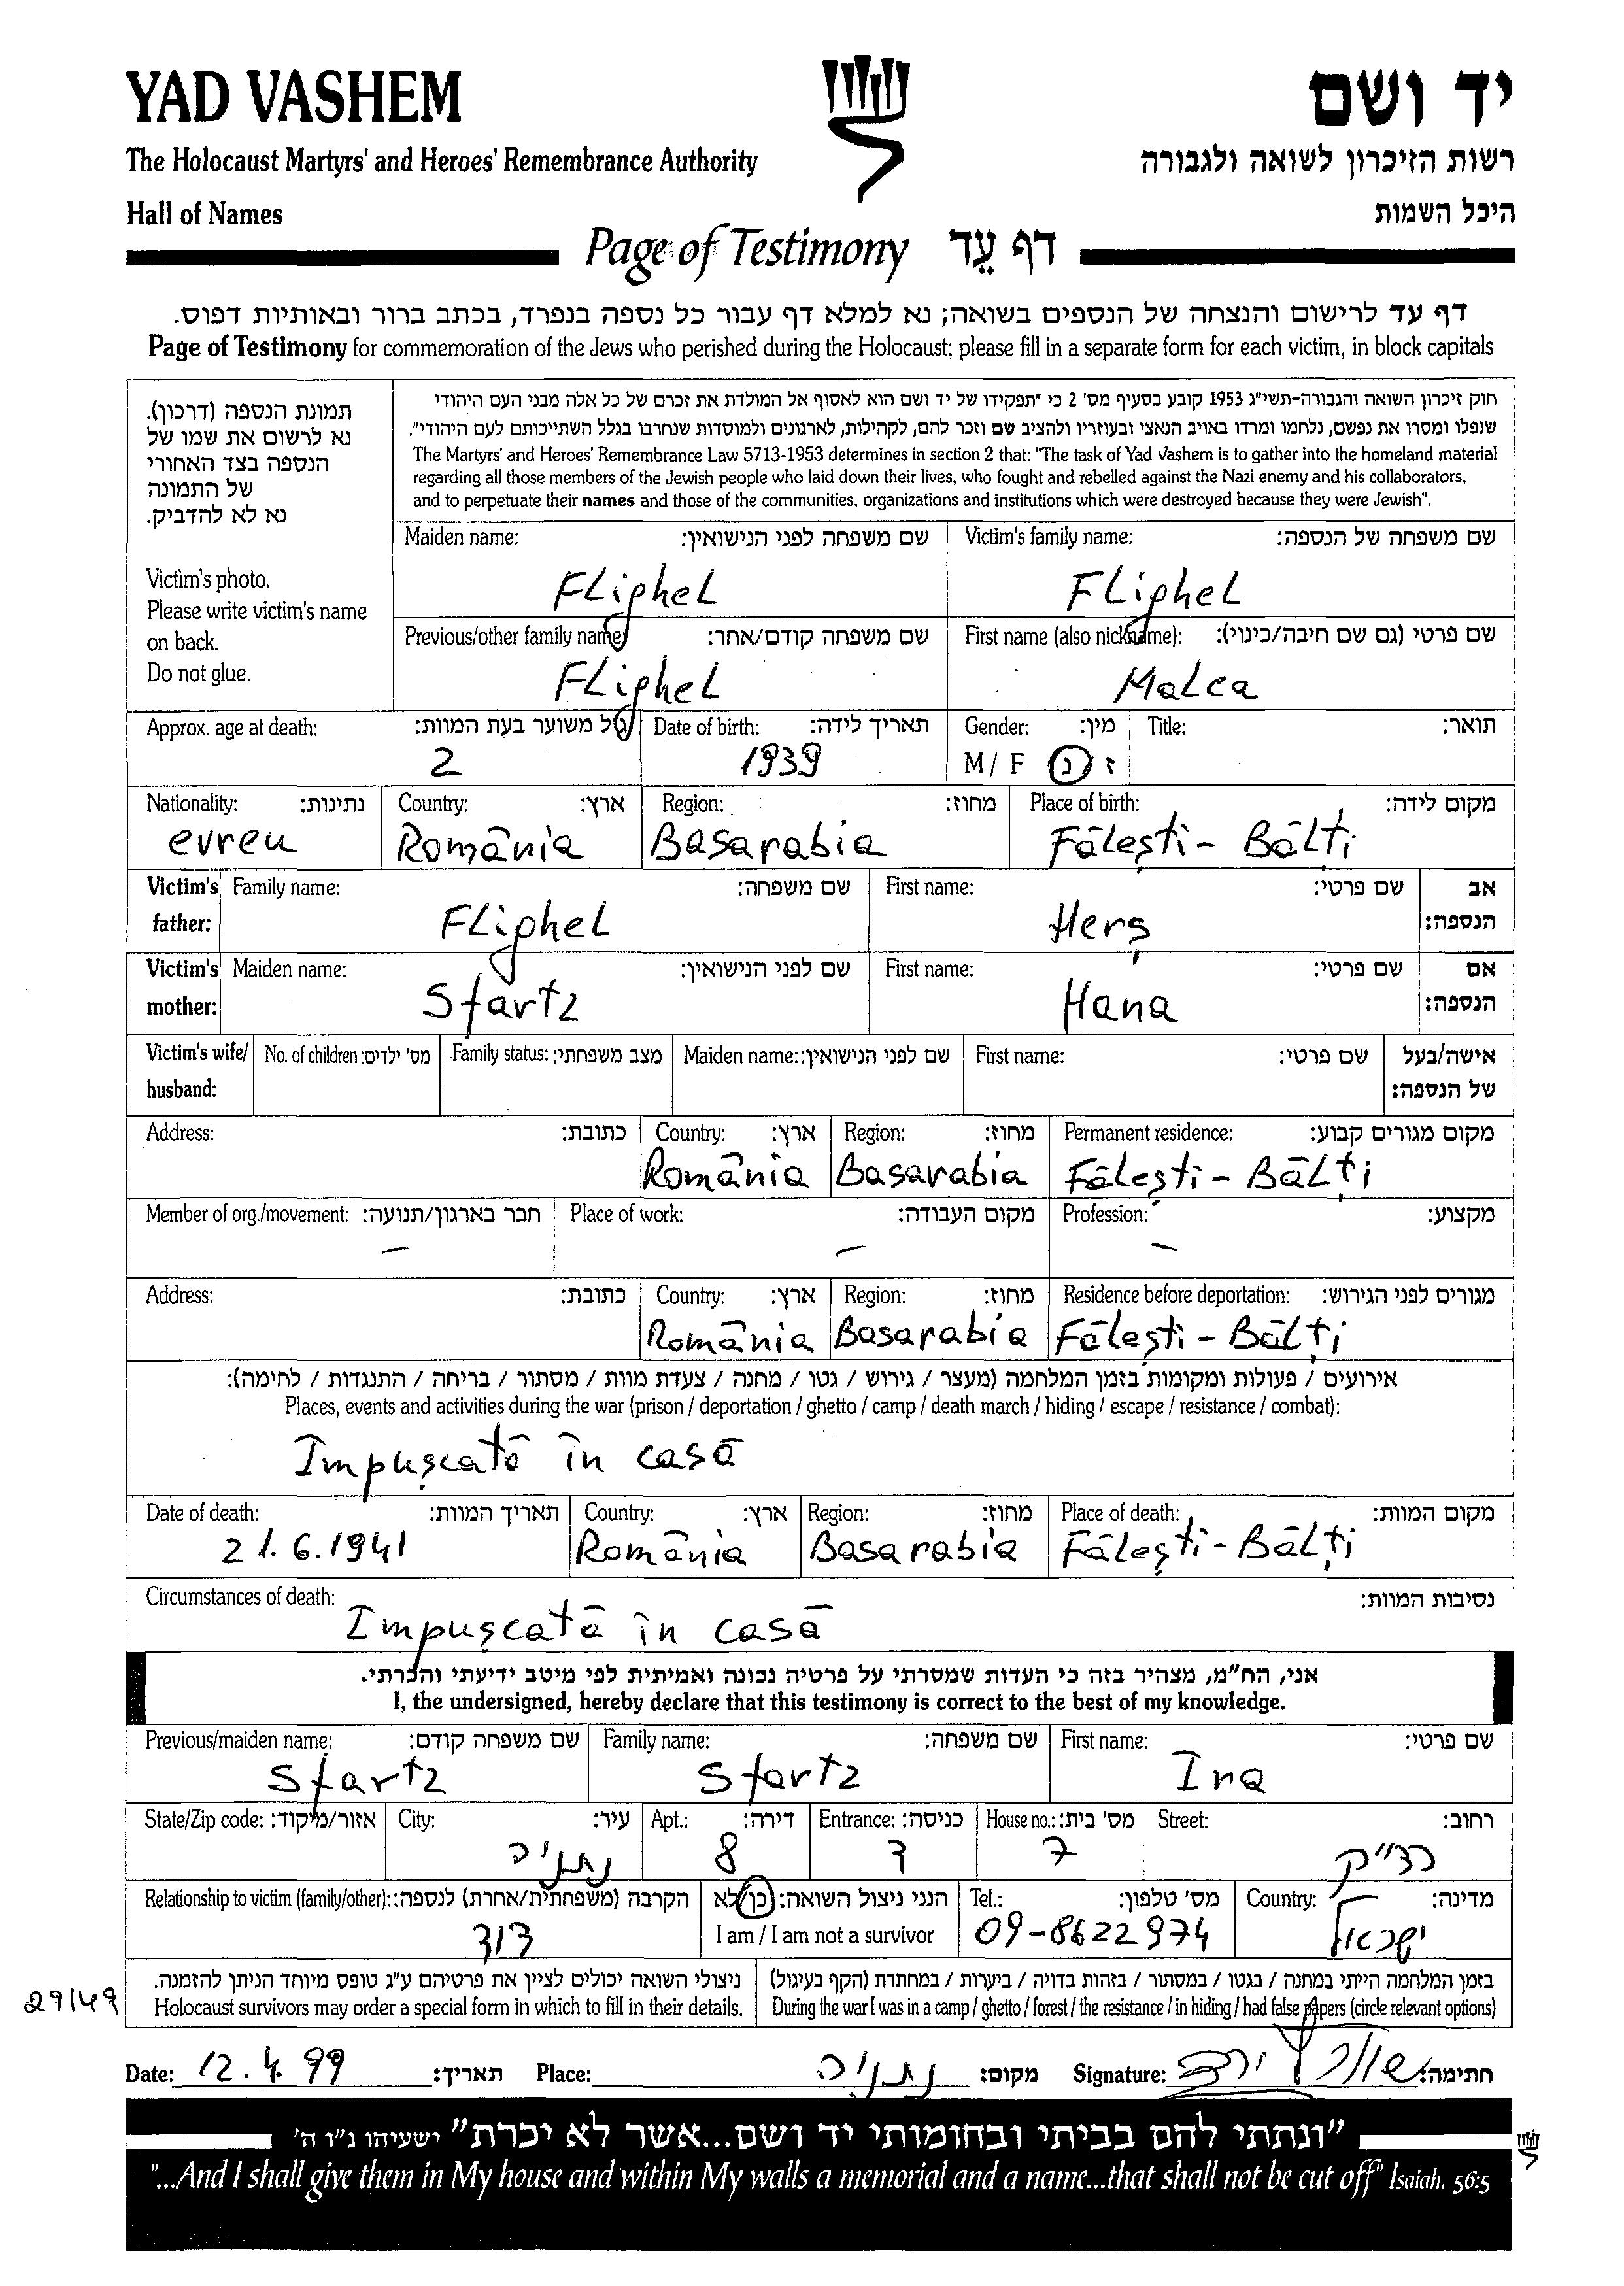 YAD VASHEM
יד ושם
The Holocaust Martyrs' and Heroes' Remembrance Authority
רשות הזיכרון לשואה ולגבורה
Hall of Names
היכל השמות
Page of Testimony דף עֵד
דף עד לרישום והנצחה של הנספים בשואה; נא למלא דף עבור כל נספה בנפרד, בכתב ברור ובאותיות דפוס.
Page of Testimony for commemoration of the Jews who perished during the Holocaust; please fill in a separate form for each victim, in block capitals
תמונת הנספה (דרכון).
נא לרשום את שמו של
הנספה בצד האחורי
של התמונה
נא לא להדביק.
Victim's photo.
Please write victim's name
on back.
Do not glue.
חוק זיכרון השואה והגבורה-תשי"ג 1953 קובע בסעיף מס' 2 כי "תפקידו של יד ושם הוא לאסוף אל המולדת את זכרם של כל אלה מבני העם היהודי
שנפלו ומסרו את נפשם, נלחמו ומרדו באויב הנאצי ובעוזריו ולהציב שם וזכר להם, לקהילות, לארגונים ולמוסדות שנחרבו בגלל השתייכותם לעם היהודי".
The Martyrs' and Heroes' Remembrance Law 5713-1953 determines in section 2 that: "The task of Yad Vashem is to gather into the homeland material
regarding all those members of the Jewish people who laid down their lives, who fought and rebelled against the Nazi enemy and his collaborators,
and to perpetuate their names and those of the communities, organizations and institutions which were destroyed because they were Jewish".
Maiden name: שם משפחה לפני הנישואין: Victim's family name: שם משפחה של הנספה:
Flighel Flighel
Previous/other family name: שם משפחה קודם/אחר: First name (also nickname): שם פרטי (גם שם חיבה/כינוי):
Flighel Malca
Approx. age at death: גיל משוער בעת המוות: Date of birth: תאריך לידה: Gender: מין: Title: תואר:
2 1939 M / F ז / נ
Nationality: נתינות: Country: ארץ: Region: מחוז: Place of birth: מקום לידה:
evreu România Basarabia Fălești - Bălți
Victim's father: Family name: שם משפחה: First name: שם פרטי: אב הנספה:
Flighel Herș
Victim's mother: Maiden name: שם לפני הנישואין: First name: שם פרטי: אם הנספה:
Sfartz Hana
Victim's wife/ husband: No. of children: מס' ילדים: Family status: מצב משפחתי: Maiden name: שם לפני הנישואין: First name: שם פרטי: אישה/בעל של הנספה:
Address: כתובת: Country: ארץ: Region: מחוז: Permanent residence: מקום מגורים קבוע:
România Basarabia Fălești - Bălți
Member of org./movement: חבר בארגון/תנועה: Place of work: מקום העבודה: Profession: מקצוע:
– – –
Address: כתובת: Country: ארץ: Region: מחוז: Residence before deportation: מגורים לפני הגירוש:
România Basarabia Fălești - Bălți
אירועים / פעולות ומקומות בזמן המלחמה (מעצר / גירוש / גטו / מחנה / צעדת מוות / מסתור / בריחה / התנגדות / לחימה):
Places, events and activities during the war (prison / deportation / ghetto / camp / death march / hiding / escape / resistance / combat):
Împușcată în casă
Date of death: תאריך המוות: Country: ארץ: Region: מחוז: Place of death: מקום המוות:
21.6.1941 România Basarabia Fălești - Bălți
Circumstances of death: נסיבות המוות:
Împușcată în casă
אני, הח"מ, מצהיר בזה כי העדות שמסרתי על פרטיה נכונה ואמיתית לפי מיטב ידיעתי והכרתי.
I, the undersigned, hereby declare that this testimony is correct to the best of my knowledge.
Previous/maiden name: שם משפחה קודם: Family name: שם משפחה: First name: שם פרטי:
Sfartz Sfartz Ira
State/Zip code: אזור/מיקוד: City: עיר: Apt.: דירה: Entrance: כניסה: House no.: מס' בית: Street: רחוב:
נתניה 8 ד 7 רד"ק
Relationship to victim (family/other): הקרבה (משפחתית/אחרת) לנספה: הנני ניצול השואה: כן / לא Tel.: מס' טלפון: Country: מדינה:
דוד I am / I am not a survivor 09-8622974 ישראל
ניצולי השואה יכולים לציין את פרטיהם ע"ג טופס מיוחד הניתן להזמנה.
Holocaust survivors may order a special form in which to fill in their details.
בזמן המלחמה הייתי במחנה / בגטו / במסתור / בזהות בדויה / ביערות / במחתרת (הקף בעיגול)
During the war I was in a camp / ghetto / forest / the resistance / in hiding / had false papers (circle relevant options)
29/49
Date: 12.4.99 תאריך: Place: נתניה מקום: Signature: חתימה:
"ונתתי להם בביתי ובחומותי יד ושם...אשר לא יכרת" ישעיהו נ"ו ה'
"...And I shall give them in My house and within My walls a memorial and a name...that shall not be cut off" Isaiah, 56:5